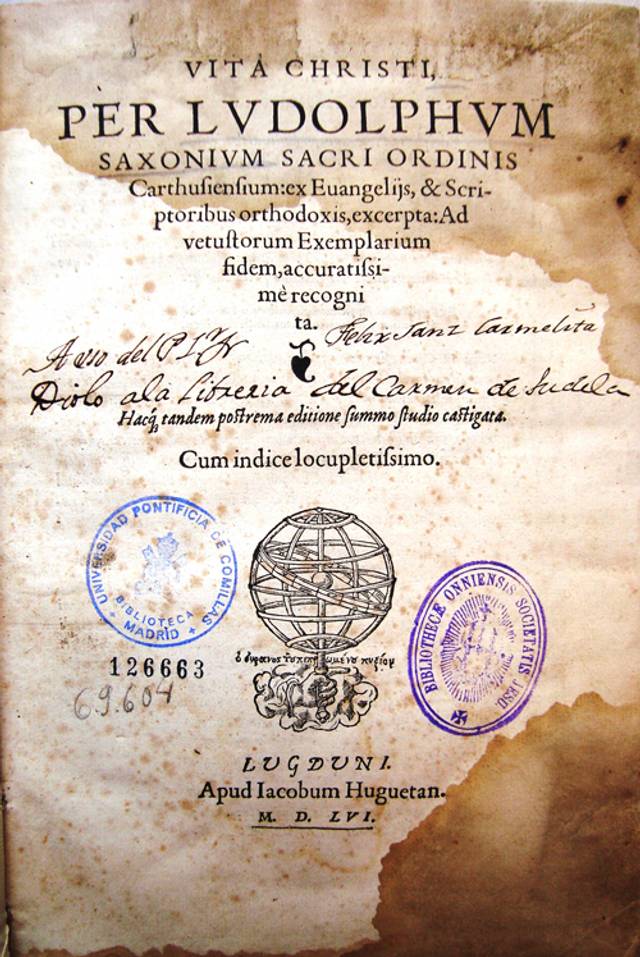 VITA CHRISTI,
PER LVDOLPHVM
SAXONIVM SACRI ORDINIS
Carthuſienſium: ex Euangelijs, & Scri-
ptoribus orthodoxis, excerpta: Ad
vetuſtorum Exemplarium
fidem, accuratiſsi-
mè recogni
ta.
Felix Sanz Carmelita
A uso del P
Diolo ala Libreria del Carmen de Tudela
Hacq́; tandem poſtrema editione ſummo ſtudio caſtigata.
Cum indice locupletiſsimo.
UNIVERSIDAD PONTIFICIA DE COMILLAS
BIBLIOTECA
MADRID
BIBLIOTHECÆ ONNIENSIS SOCIETATIS JESU
126663
69.604
LUGDUNI.
Apud Iacobum Huguetan.
M. D. LVI.